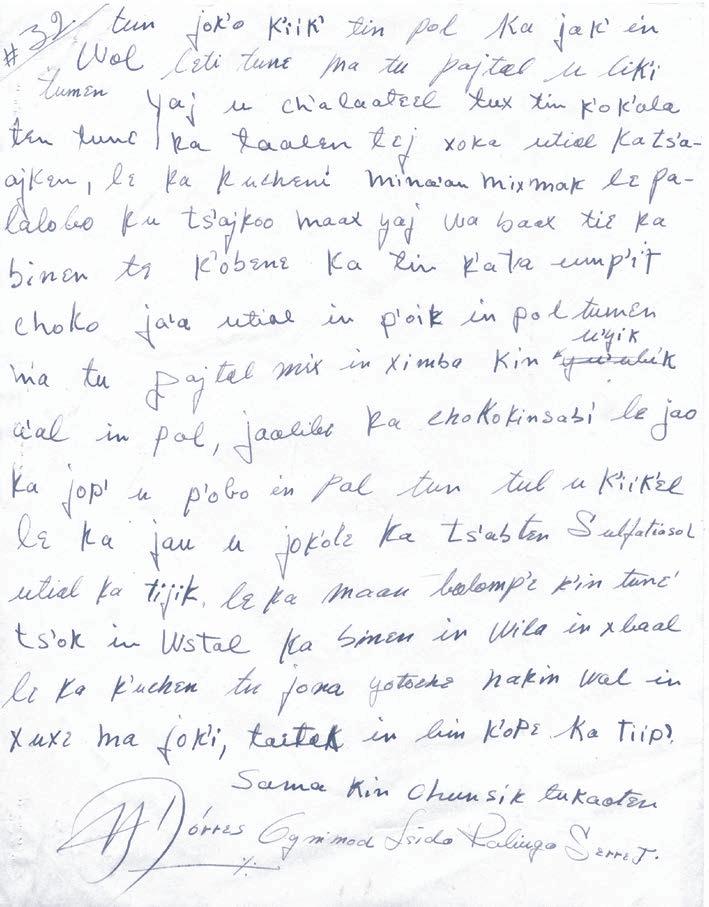 #32 tun jok'o k'iik' tin pol ka jak' en
Wol leti tune ma tu pajtal u liki
tumen yaj u ch'alaateel tux tin k'ok'ala
ten tune ka taalen tej xoka utial ka ts'a-
ajken, le ka kucheni mina'an mixmak le pa-
lalobo ku ts'ajkoo maax yaj wa baax tie ka
binen te k'obene ka tin k'ata ump'it
choko ja'a utial in p'oik in pol tumen
u'yik
ma tu pajtal mix in ximba kin
a'al in pol, jaalibe ka chokokinsabi le jao
ka jop' u p'obo in pol tun tul u k'iik'el
le ka jau u jok'ole ka ts'abten Sulfatiasol
utial ka tijik. le ka maan bolomp'e k'in tune'
ts'ok in wstal ka binen in wila in xbaal
le ka k'uchen tu jona yotoche nakin wal in
xuxe ma jok'i, taitak in bin k'ope ka tiip'.
Sama kin chunsik tukaaten
órres